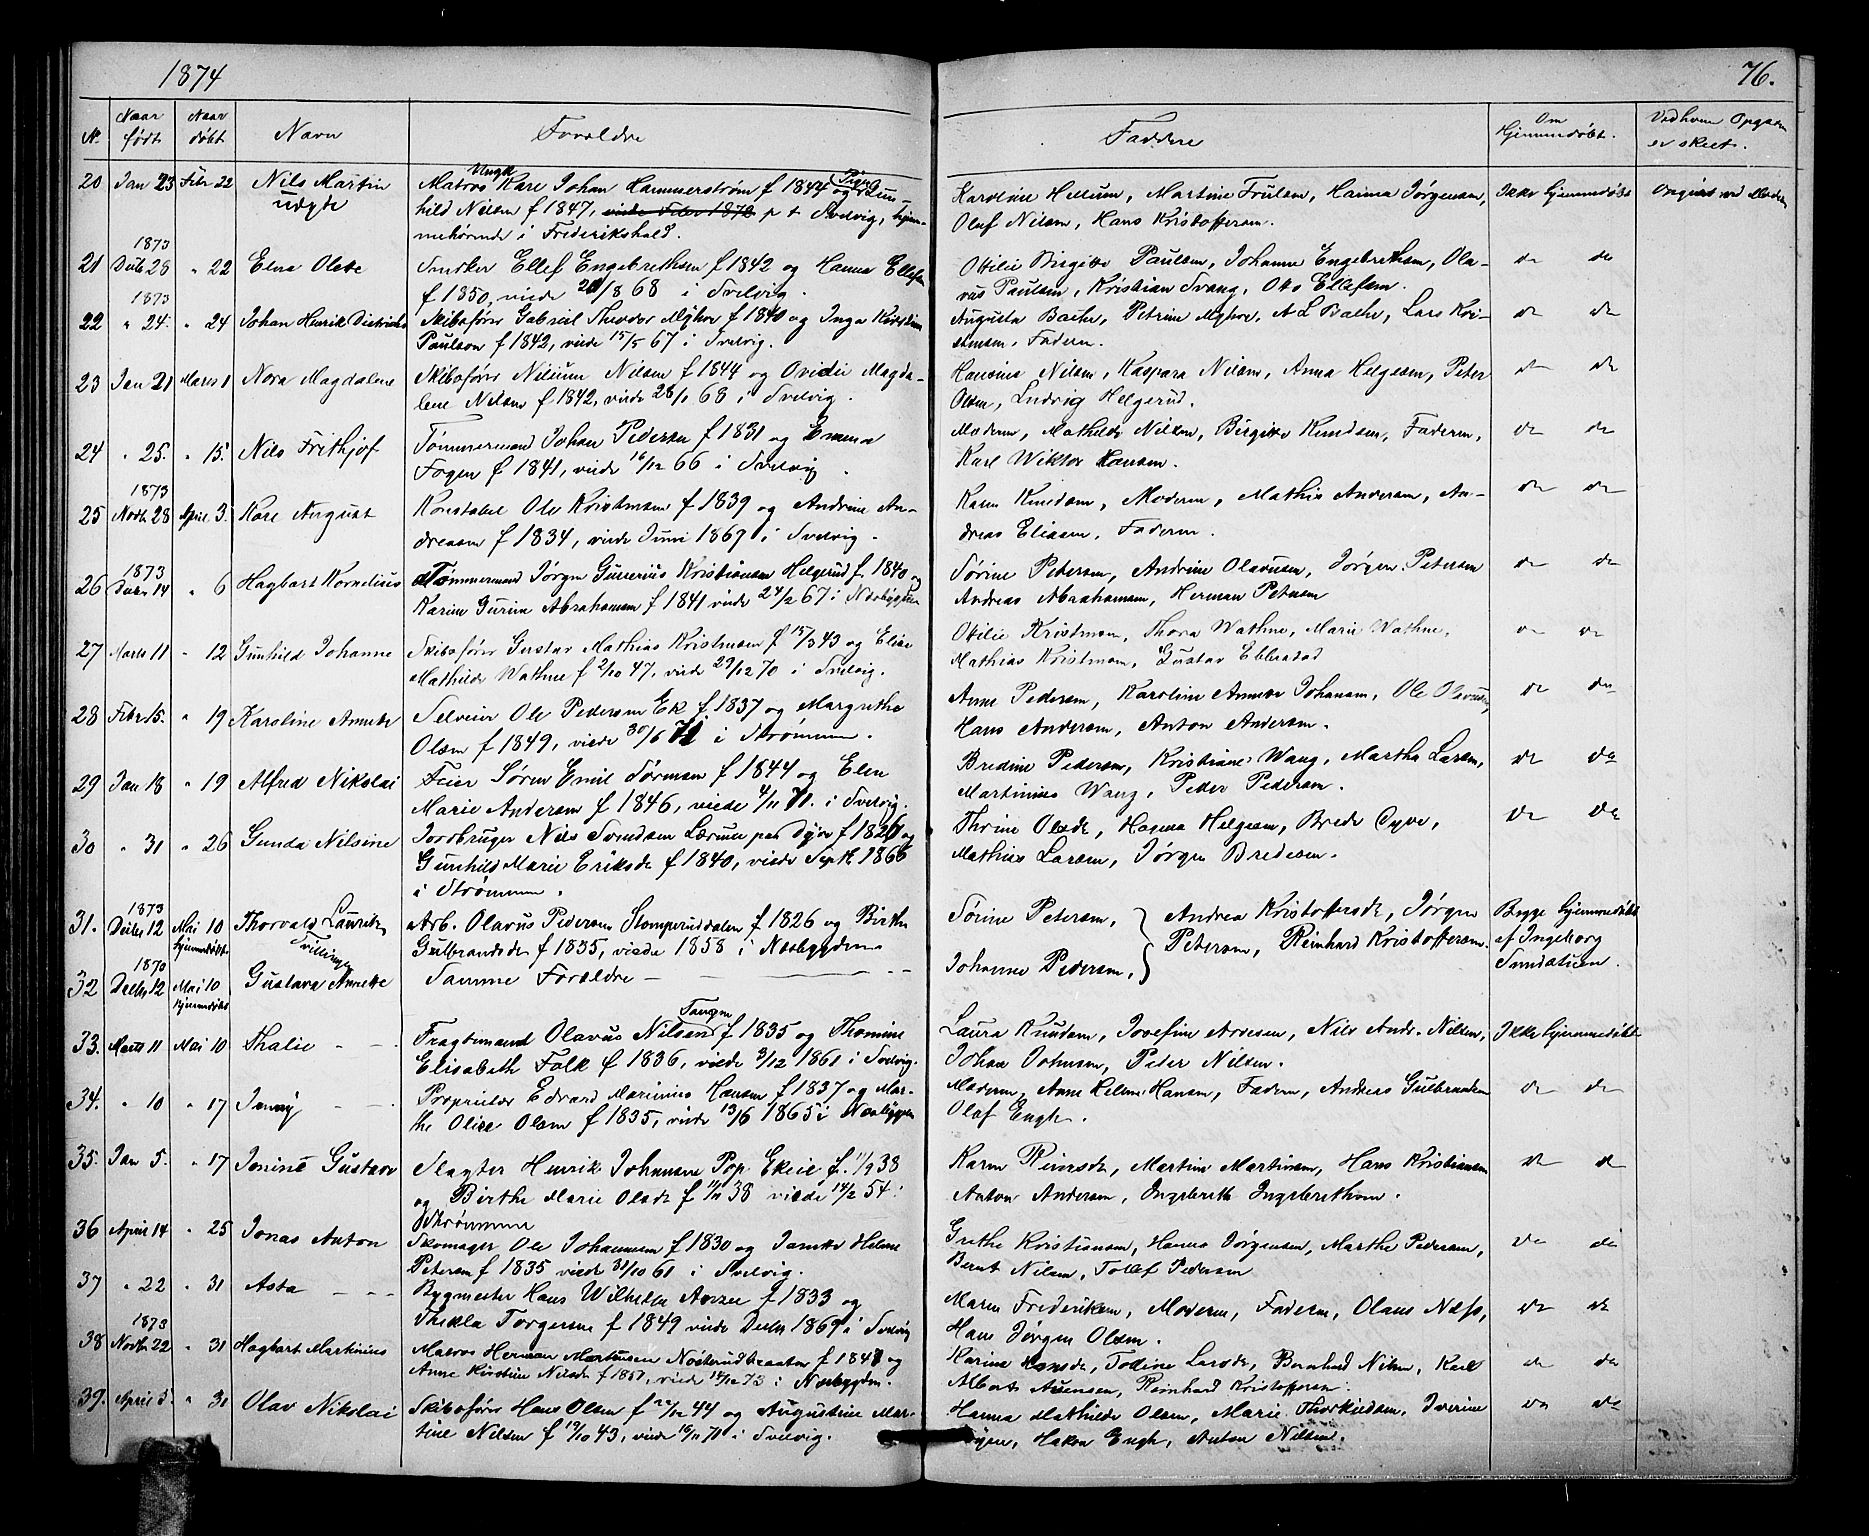 1874
76.
No. Naar født Naar døbt Navn Forældre Faddere Om Hjemmedøbt. Ved hvem Opgaven er skeet.
20 Jan 23 Febr 22 Nils Martin uægte
Matros Ungk Karl Johan Hammerstrøm f 1844 og Pige Gun-
hild Nilsen f 1847, p t Svelvig, hjem-
mehørende i Frederikshald.
Karoline Hellum, Martine Frulsen, Hanna Jørgensen,
Olaf Nilsen, Hans Kristoffersen.
Ikke hjemmedøbt
Opgivet ved Moderen
21 1873 Decbr 28 " 22 Elna Olette
Smed Ellef Engebrethsen f 1842 og Hanna Ellefsen
f 1850, viede 20/8 68 i Svelvig.
Otilie Birgitte Paulsen, Johanne Engebrethsen, Ola-
vus Paulsen, Kristian Svang, Otto Ellefsen.
do do
22 1873 " 24. " 24 Johan Henrik Dietrichs
Skibsfører Gabriel Theodor Myhre f 1840 og Inga Kirstine
Paulson f 1842, viede 15/5 67 i Svelvig.
Augusta Bache, Petrine Myhre, A L Bache, Lars Kri-
stensen, Faderen.
do do
23 Jan 21 Marts 1 Nora Magdalene
Skibsfører Nilsen f 1844 og Ovidie Magda-
lene Nilsen f 1842, viede 28/1 68 i Svelvig.
Hansine Nilsen, Kaspara Nilsen, Anna Helgesen, Peter
Olsen, Ludvig Helgerud.
do do
24 " 25. " 15. Nils Frithjof
Tømmermand Johan Pedersen f 1831 og Emma
Fogen f 1841, viede 16/12 66 i Svelvig.
Moderen, Mathilde Nilsen, Birgitte Knudsen, Faderen,
Karl Wiktor Hansen.
do do
25 1873 Novbr 28 April 3. Karl August
Konstabel Ole Kristensen f 1839 og Andrine An-
dreasen f 1834, viede Juni 1869 i Svelvig.
Karen Knudsen, Moderen, Mathis Andersen, An-
dreas Eliasen, Faderen.
do do
26 1873 Decbr 14 " 6 Hagbart Kornelius
Tømmermand Jørgen Gunerius Kristiansen Helgerud f. 1840 og
Karin Gurine Abrahamsen f 1841 viede 24/2 67 i Næsbygden
Sørine Pedersen, Andrine Olavusen, Jørgen Petersen
Andreas Abrahamsen, Herman Petersen
do do
27 Marts 11 " 12 Gunhild Johanne
Skibsfører Gustav Mathias Kristensen f 15/3 43 og Elise
Mathilde Wathne f 2/10 47, viede 29/12 70 i Svelvig.
Otilie Kristensen, Thora Wathne, Marie Wathne,
Mathias Kristensen, Gustav Ebbestad
do do
28 Febr 15. " 19 Karoline Annette
Selveier Ole Pedersen Ek f 1837 og Margrethe
Olsen f 1849, viede 30/6 71 i Strømmen.
Anne Pedersen, Karoline Annette Johansen, Ole Olavesen,
Hans Andersen, Anton Andersen.
do do
29 Jan 18 " 19 Alfred Nikolai
Feier Søren Emil Sørensen f 1844 og Elen
Marie Andersen f 1846, viede 4/11 71. i Svelvig.
Bredine Pedersen, Kristiane Wang, Martha Larsen,
Martinius Wang, Peder Pedersen.
do do
30 " 31 " 26 Gunda Nilsine
Jordbruger Nils Svendsen Lærum paa Dyve f 1826 og
Gunhild Marie Eriksdr f 1840, viede Septbr 1866
i Strømmen.
Thrine Olsdr, Hanna Helgesen, Brede Cyve,
Mathias Larsen, Jørgen Bredesen.
do do
31. 1873 Decbr 12 Mai 10 hjemmedøbt Thorvald Lauritz
Tvillinger
Arb. Olavus Pedersen Stomperuddalen f 1826 og Birthe
Gulbrandsdr f 1835, viede 1858 i Næsbygden
Sørine Petersen, Andrea Kristoffersdr, Jørgen
Petersen, Reinhard Kristoffersen.
Begge hjemmedøbt
af Ingeborg
32 1873 Decbr 12 Mai 10 hjemmedøbt Gustava Annette
Samme Forældre
Johanne Pedersen,
33. Marts 11 Mai 10 Thalie
Fragtemand Olavus Nilsen Tangen f 1835 og Thomine
Elisabeth Falk f 1836, viede 3/12 1861 i Svelvig.
Laura Knudsen, Josefine Arvesen, Nils Andr. Nilsen,
Johan Ottesen, Peter Nilsen.
Ikke hjemmedøbt
34. " 10 " 17 Jenny
Proprietær Edvard Marinius Hansen f 1837 og Mar-
the Olise Olsen f 1835, viede 13/6 1865 i Næsbygden
Moderen, Anne Helene Hansen, Faderen, Andreas Gulbransen
Olaf Engh.
do do
35. Jan 5. " 17 Jonine Gustava
Slagter Henrik Johansen Pop. Ekeie f. 1/9 38
og Birthe Marie Olsdr f 1/11 38 viede 14/2 54 i
Strømmen
Karen Reiersdr, Martin Martinsen, Hans Kristiansen
Anton Andersen, Ingebreth Ingebrethsen.
do do
36 April 14 " 25 Jonas Anton
Skomager Ole Johannesen f 1830 og Janette Helene
Petersen f 1835 viede 31/10 61 i Svelvig.
Grethe Kristiansen, Hanna Jørgensen, Marthe Pedersen,
Bernt Nilsen, Tollef Pedersen
do do
37 " 22 " 31 Asta
Bygmester Hans Wilhelm f 1833 og
Thekla Torgersen f 1849 viede Decbr 1869 i Svelvig
Maren Frederiksen, Moderen, Faderen, Olaus Næss,
Hans Jørgen Olsen.
do do
38 1873 Novbr 22 " 31 Hagbart Martinius
Matros Herman Martinsen Nøsterudbraaten f 1847 og
Anne Kirstine Nilsdr f 1851, viede 14/12 73 i Næsbygden.
Karine Hansdr, Todine Larsdr, Bernhard Nilsen, Karl
Albert Asensen, Reinhard Kristoffersen.
do do
39. April 5. " 31 Olav Nikolai
Skibsfører Hans Olsen f 22/12 44 og Augustine Mar-
tine Nilsen f 19/10 43, viede 16/11 71 i Svelvig.
Hanna Mathilde Olsen, Marie Thorkildsen, Iverine
Bøyen, Haken Engh, Anton Nilsen.
do do